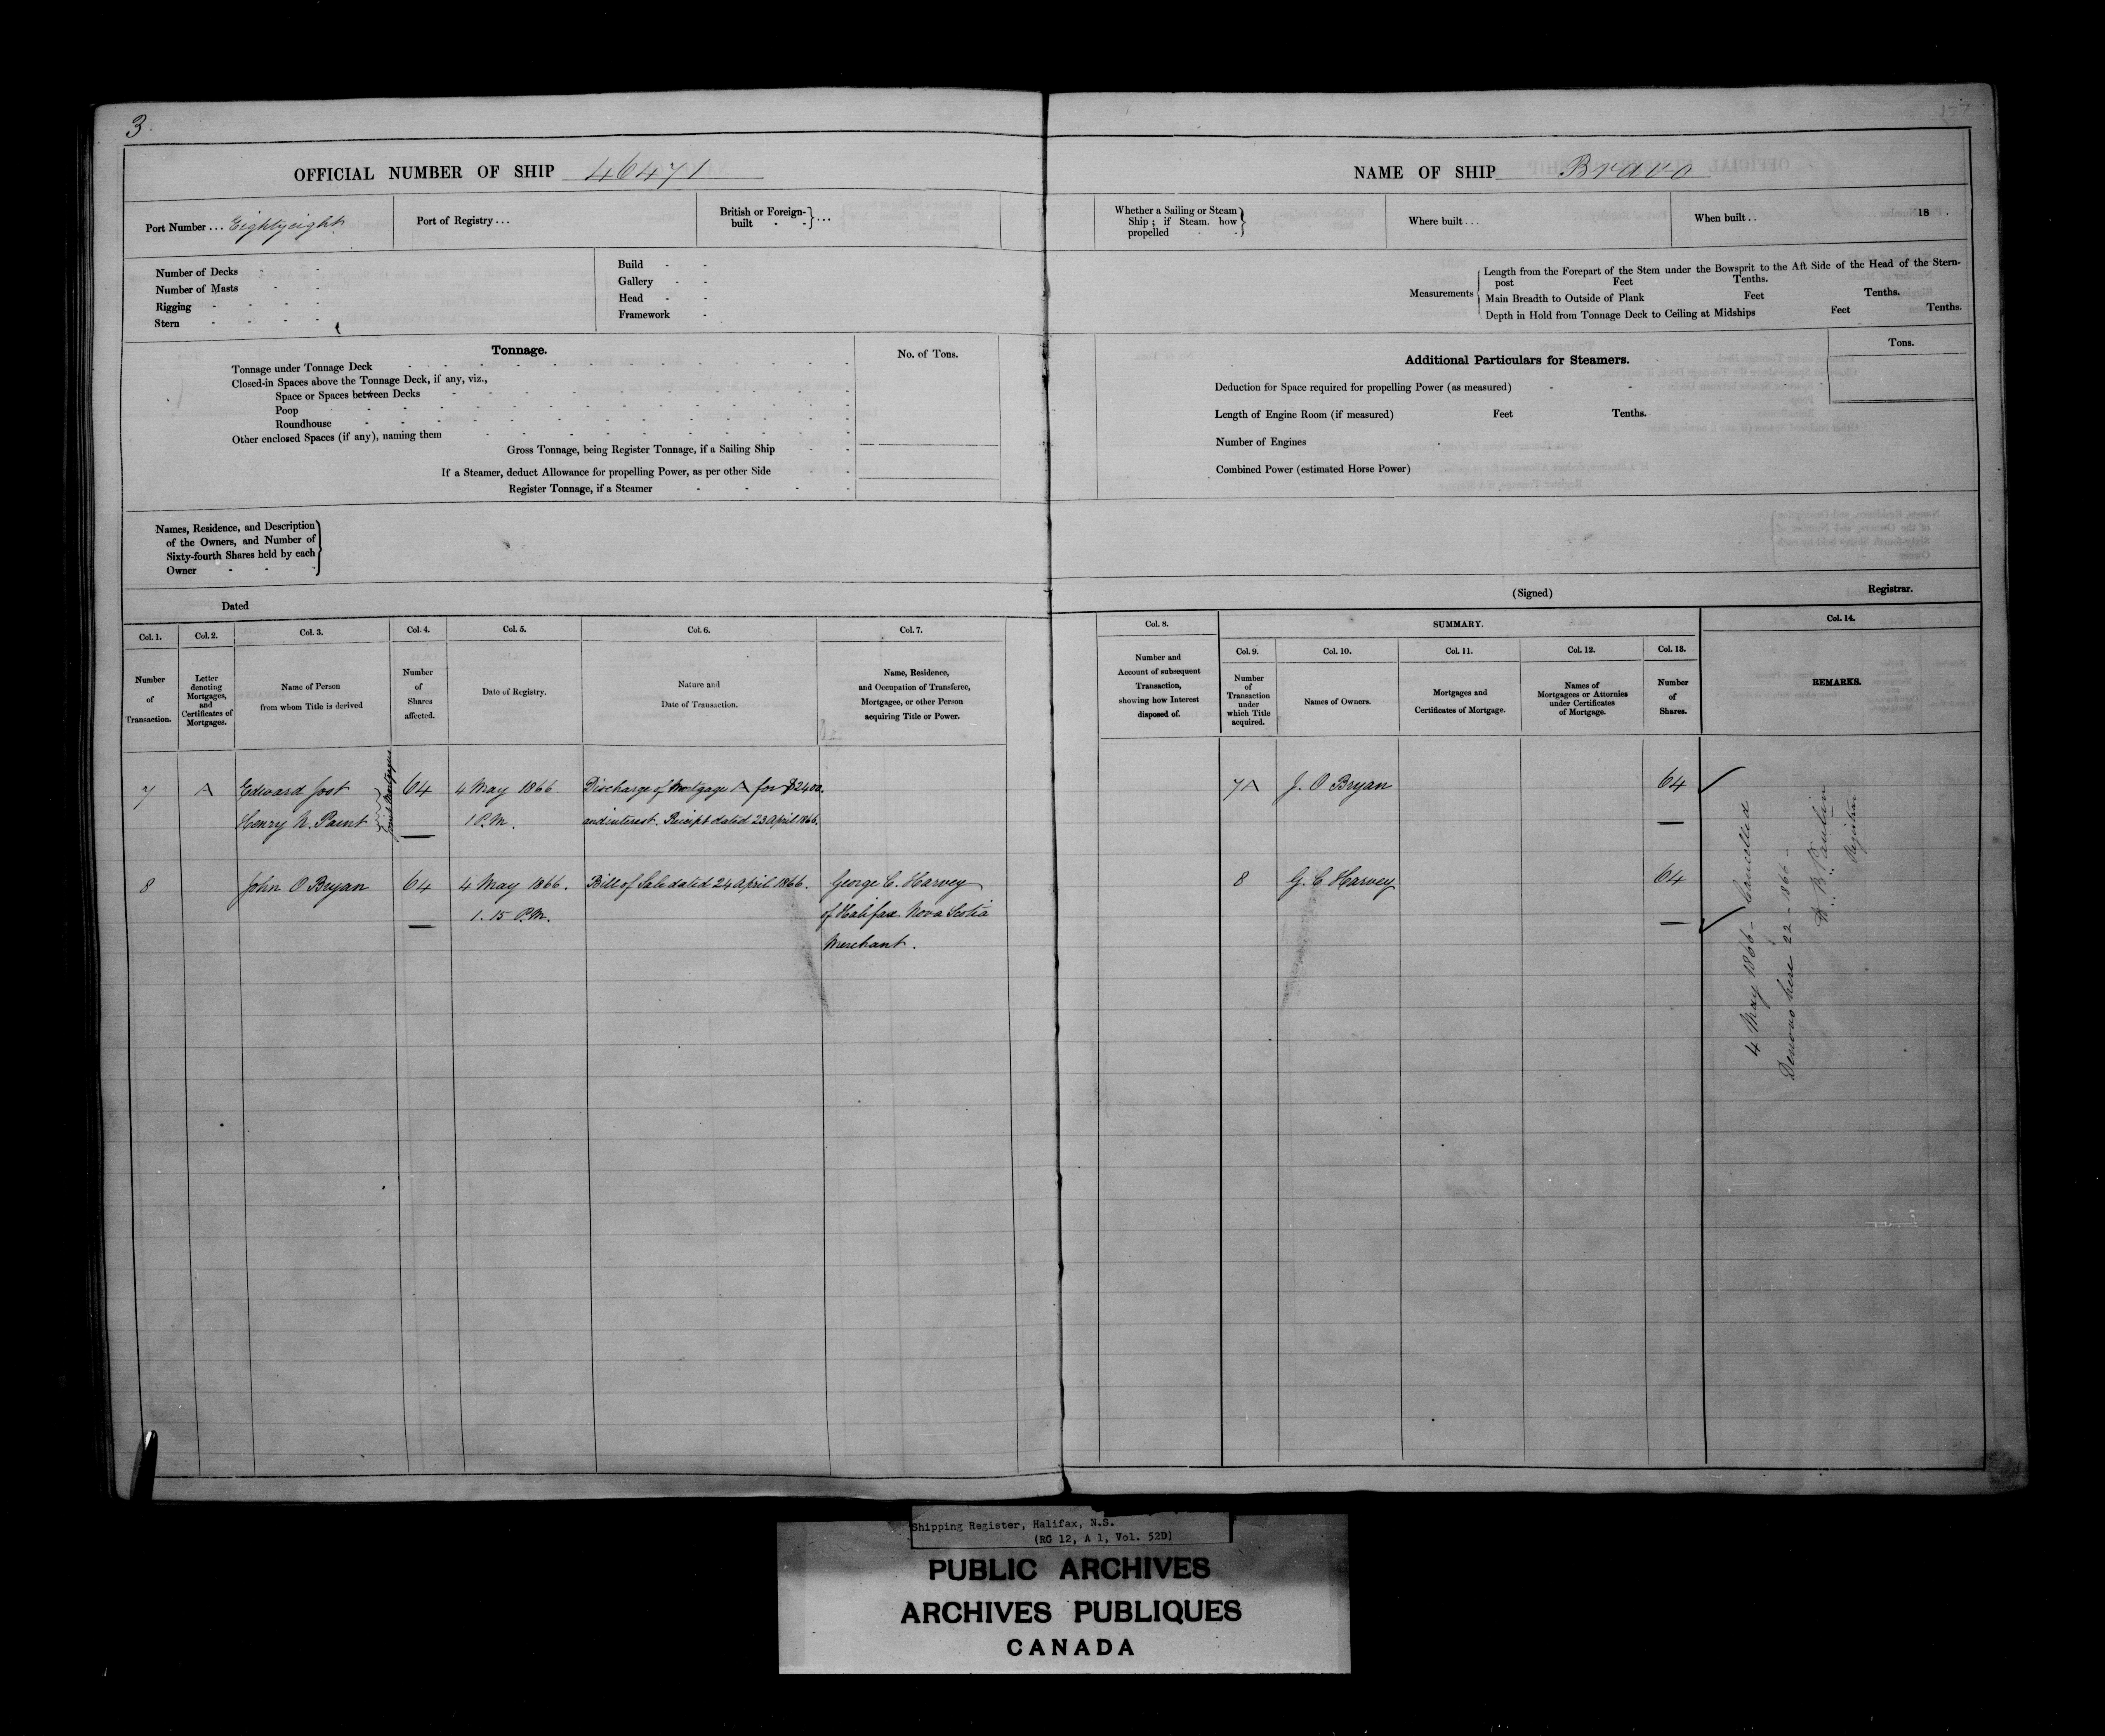 3.
OFFICIAL NUMBER OF SHIP 46471
Port Number ... Eightyeight
Port of Registry ...
British or Foreign-
built - - } ...
Number of Decks - -
Number of Masts - -
Rigging - - - -
Stern - - - -
Build - -
Gallery - -
Head - -
Framework -
Tonnage.
No. of Tons.
Tonnage under Tonnage Deck
Closed-in Spaces above the Tonnage Deck, if any, viz.,
Space or Spaces between Decks
Poop
Roundhouse
Other enclosed Spaces (if any), naming them
Gross Tonnage, being Register Tonnage, if a Sailing Ship
If a Steamer, deduct Allowance for propelling Power, as per other Side
Register Tonnage, if a Steamer
Names, Residence, and Description
of the Owners, and Number of
Sixty-fourth Shares held by each
Owner - - -
Dated
Col. 1.
Number
of
Transaction.
Col. 2.
Letter
denoting
Mortgages,
and
Certificates of
Mortgages.
Col. 3.
Name of Person
from whom Title is derived
Col. 4.
Number
of
Shares
affected.
Col. 5.
Date of Registry.
Col. 6.
Nature and
Date of Transaction.
Col. 7.
Name, Residence,
and Occupation of Transferee,
Mortgagee, or other Person
acquiring Title or Power.
7 A Edward Jost 64 4 May 1866. Discharge of Mortgage A for $2400.
Henry N. Paint 1 P.M. and interest. Receipt dated 23 April 1866.
Joint Mortgagees
8 John O Bryan 64 4 May 1866. Bill of Sale dated 24 April 1866. George C. Harvey
1.15 P.M. of Halifax Nova Scotia
Merchant.
177
NAME OF SHIP Bravo
Whether a Sailing or Steam
Ship; if Steam. how
propelled - -
Where built ...
When built .. 18 .
Measurements
Length from the Forepart of the Stem under the Bowsprit to the Aft Side of the Head of the Stern-
post Feet Tenths.
Main Breadth to Outside of Plank Feet Tenths.
Depth in Hold from Tonnage Deck to Ceiling at Midships Feet Tenths.
Additional Particulars for Steamers.
Tons.
Deduction for Space required for propelling Power (as measured) - -
Length of Engine Room (if measured) Feet Tenths.
Number of Engines
Combined Power (estimated Horse Power)
(Signed) Registrar.
Col. 8.
Number and
Account of subsequent
Transaction,
showing how Interest
disposed of.
SUMMARY.
Col. 9.
Number
of
Transaction
under
which Title
acquired.
Col. 10.
Names of Owners.
Col. 11.
Mortgages and
Certificates of Mortgage.
Col. 12.
Names of
Mortgagees or Attornies
under Certificates
of Mortgage.
Col. 13.
Number
of
Shares.
Col. 14.
REMARKS.
7A J. O Bryan 64
8 G. C Harvey 64
4 May 1866 - Cancelled
Denovo here 22 - 1866 -
Registrar
Shipping Register, Halifax, N.S.
(RG 12, A 1, Vol. 52D)
PUBLIC ARCHIVES
ARCHIVES PUBLIQUES
CANADA